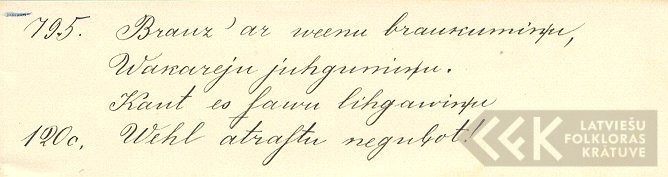 795. Brauz' ar weenu braukumiņu,
Wakareju juhgumiņu.
Kaut es sawu lihgawiņu
120c. Wehl atrastu neguļot!
LFK
LATVIEŠU
FOLKLORAS
KRĀTUVE